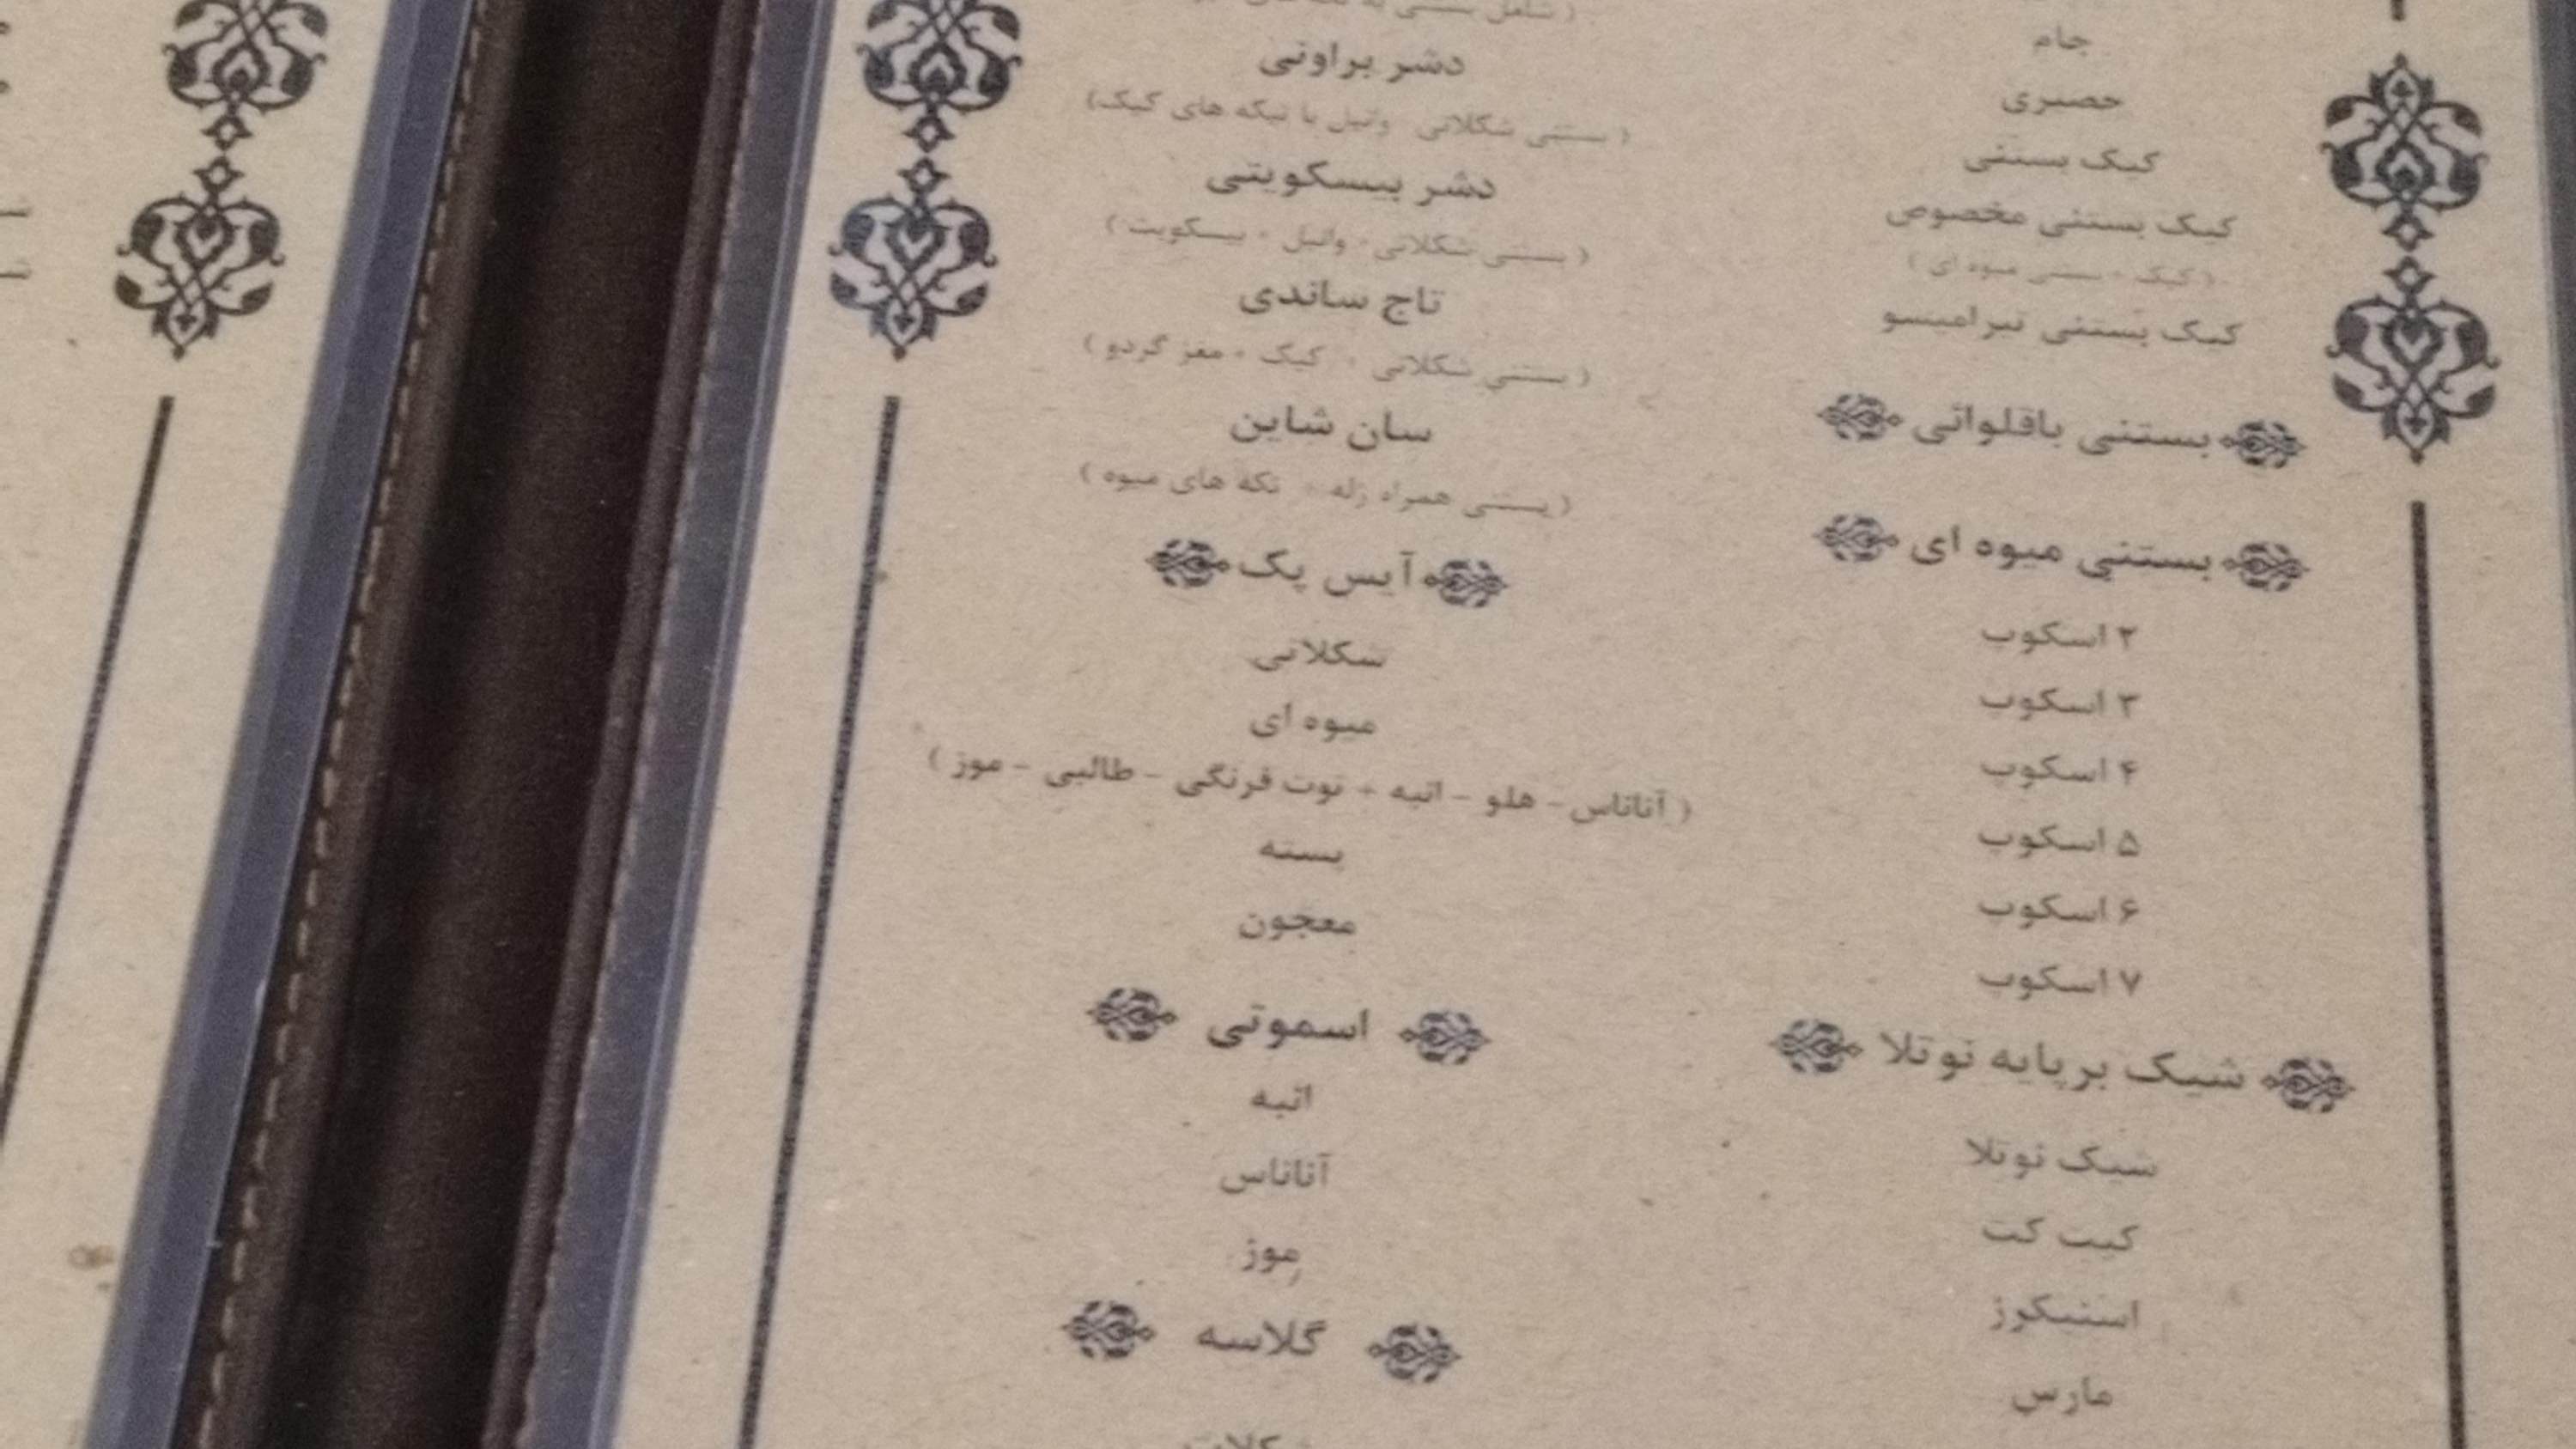 جام
حصیری
کیک بستنی
کیک بستنی مخصوص
( کیک + بستنی میوه ای )
کیک بستنی تیرامیسو
بستنی باقلوائی
بستنی میوه ای
۲ اسکوپ
۳ اسکوپ
۴ اسکوپ
۵ اسکوپ
۶ اسکوپ
۷ اسکوپ
شیک برپایه نوتلا
شیک نوتلا
کیت کت
اسنیکرز
مارس
دسر براونی
( بستنی شکلاتی وانیل با تیکه های کیک)
دسر بیسکویتی
( بستنی شکلاتی + وانیل + بیسکویت )
تاج ساندی
( بستنی شکلاتی + کیک + مغز گردو )
سان شاین
( بستنی همراه ژله + تکه های میوه )
آیس پک
شکلاتی
میوه ای
( آناناس - هلو - انبه + توت فرنگی - طالبی - موز )
پسته
معجون
اسموتی
انبه
آناناس
موز
گلاسه